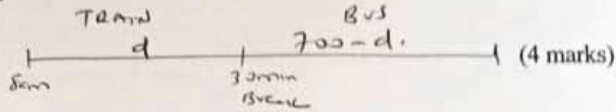 TRAIN BUS
d 700 - d.
(4 marks)
8am 30min
Break